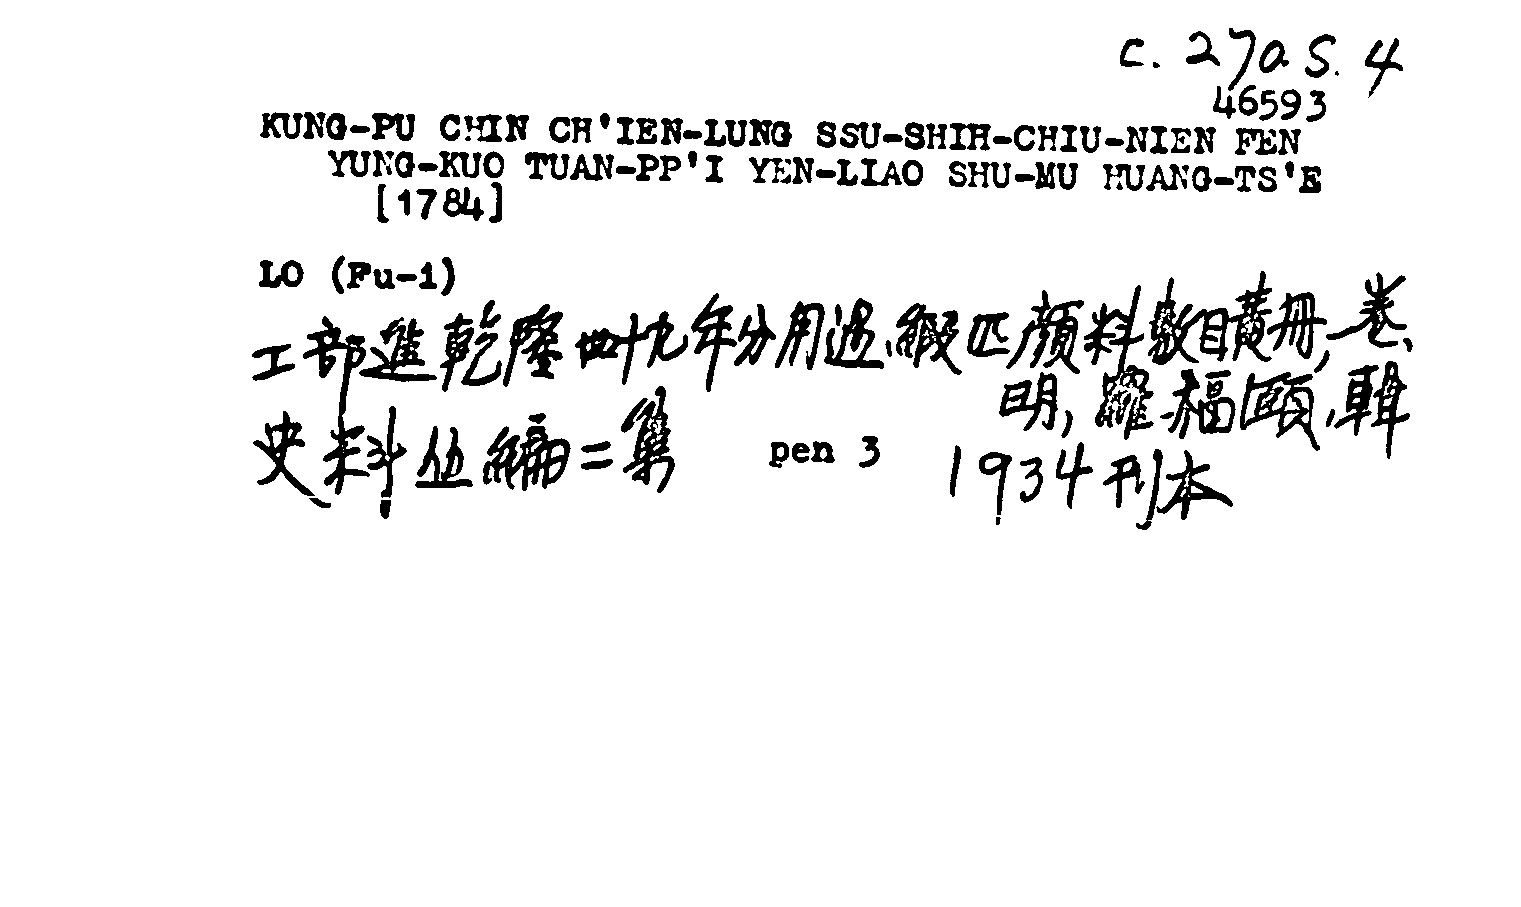 C. 270. S. 4
46593
KUNG-PU CHIN CH'IEN-LUNG SSU-SHIH-CHIU-NIEN FEN
YUNG-KUO TUAN-PP'I YEN-LIAO SHU-MU HUANG-TS'E
[1784]
LO (Fu-i)
工部進乾隆四十九年分用過緞匹顏料數目黃冊,一卷、
明, 羅福頤,輯
史料丛編二集 pen 3 1934刊本